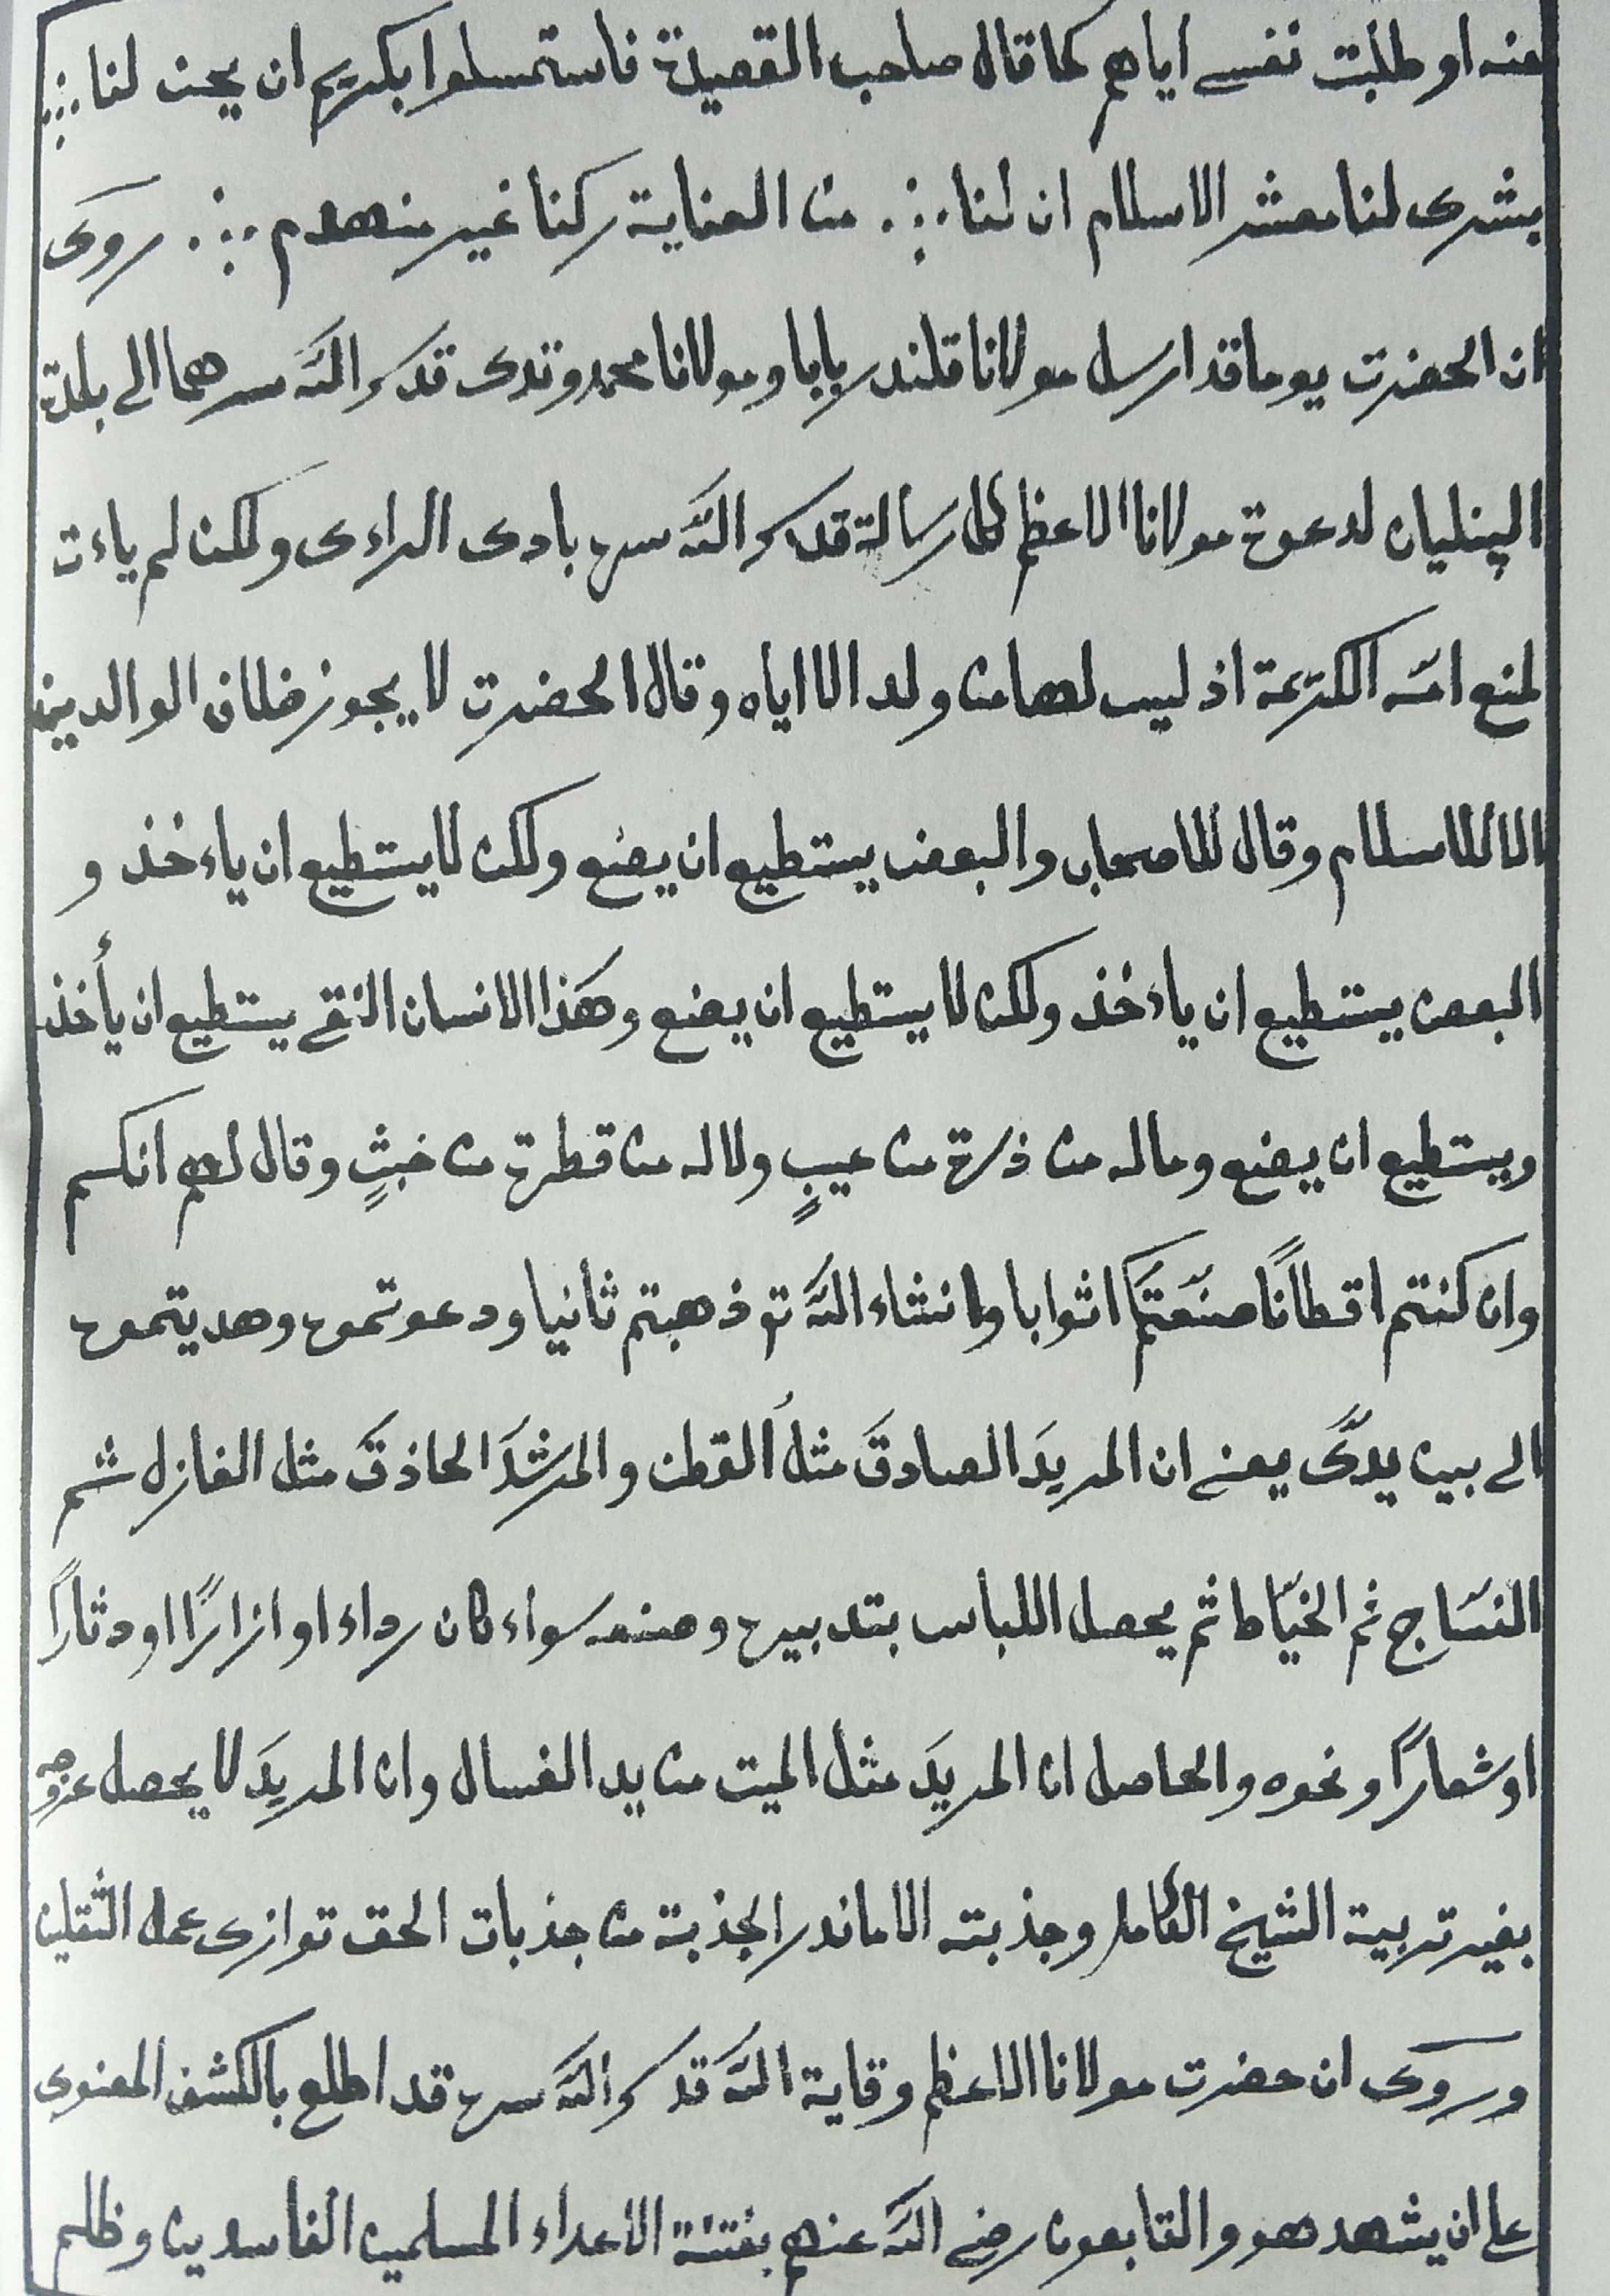 عنه او طلبت نفسى اياهم كما قال صاحب القصيدة فاستمسلوا بكريم ان يحن لنا
بشرى لنا معشر الاسلام ان لنا من العناية ركنا غير منهدم روى
ان الحضرت يوما قد ارسل مولانا قلندر بابا و مولانا محمد وندى قدس اللّه سرهما الى بلدة
الپنليان لدعوة مولانا الاعظم رسالة قدس اللّه سره بادى الراءى ولكن لم ياءت
لمنع امّه الكريمة اذ ليس لها من ولد الا اياه وقال الحضرت لا يجوز خلاف الوالدين
الا للاسلام وقال للاصحاب والبعض يستطيع ان يضع ولكن لا يستطيع ان ياءخذ و
البعض يستطيع ان ياءخذ ولكن لا يستطيع ان يضع وهذا الانسان النقى يستطيع ان يأخذ
ويستطيع ان يضع وماله من ذرة من عيبٍ ولا له من قطرة من خبثٍ وقال لهم انكم
وان كنتم اقطانًا صنعتكم اثوابا وانشاء اللّه تو ذهبتم ثانيا ودعوتموه وهديتموه
الى بين يدىّ يعنى ان المريدَ الصادقَ مثلُ القطن والمرشدَ الحاذقَ مثل الغازل ثم
النسّاج ثم الخيّاط ثم يحصل اللباس بتدبيره وصنعه سواء كان رداء او ازارًا او دثارًا
او شعارًا ونحوه والحاصل ان المريدَ مثل الميت من يد الغسال وان المريدَ لا يحصل
بغير تربية الشيخ الكامل وجذبته الا ماندر الجذبة من جذبات الحق توازى عمل الثّقلين
وروى ان حضرت مولانا الاعظم وقاية اللّه قدس اللّه سره قد اطلع بالكشف المعنوى
على ان يشهد هو والتابعون رضى اللّه عنهم بفتنة الاعداء المسلمين الفاسدين وظلم